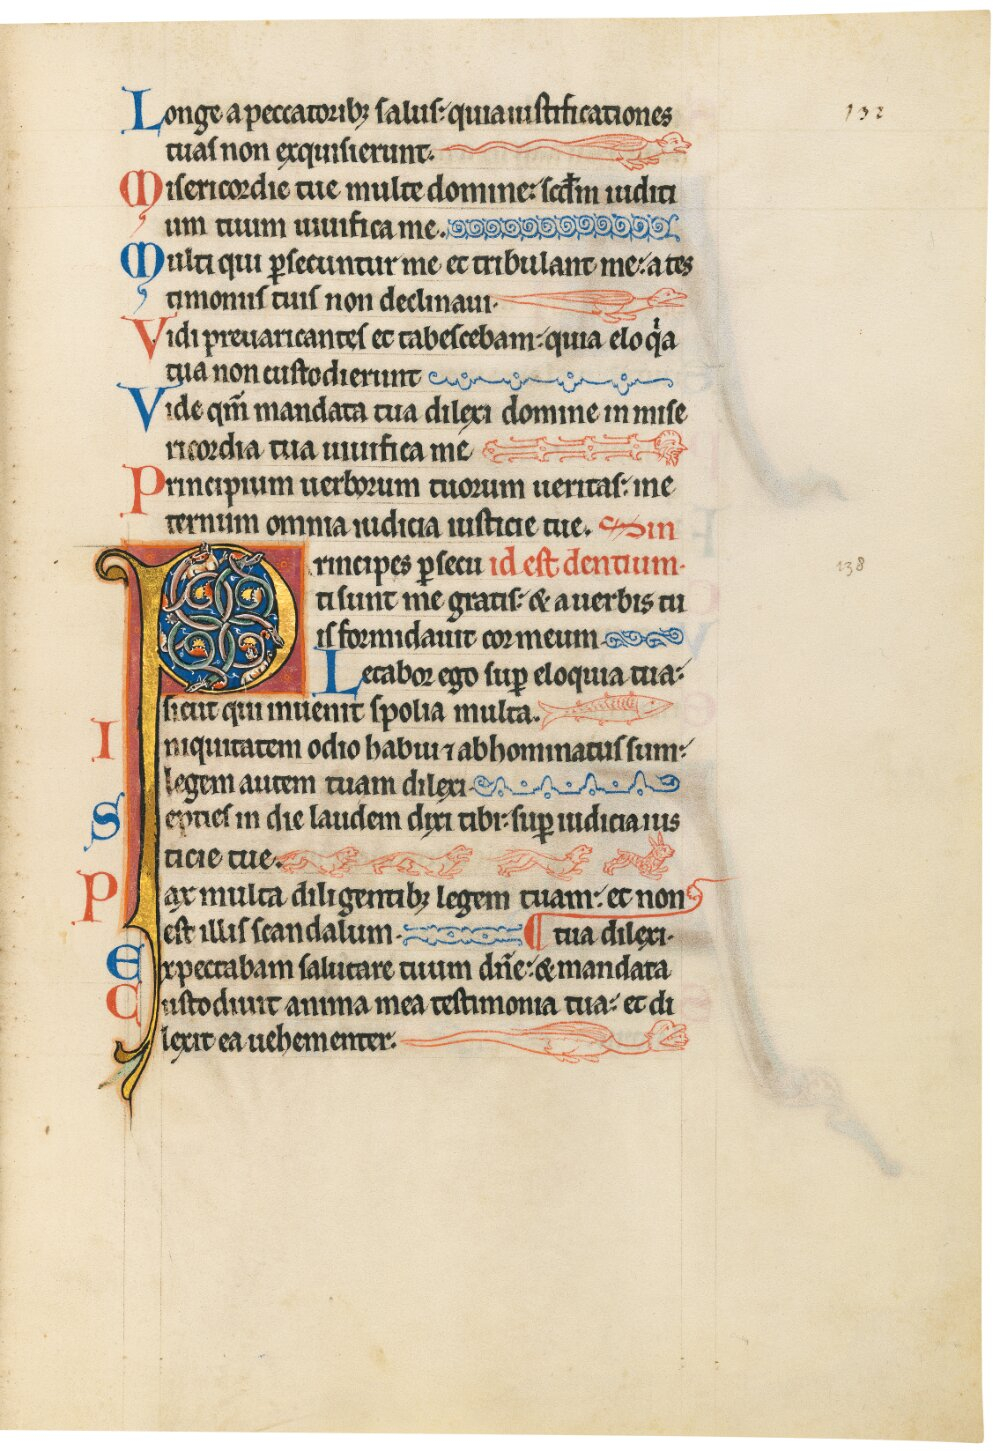 Longe a peccatoribꝫ salus: quia iustificationes
132
tuas non exquisierunt.
Misericordie tue multe domine: scd̄m iudici
um tuum uiuifica me.
Multi qui ꝑsecuntur me et tribulant me: a tes
timoniis tuis non declinaui.
Vidi preuaricantes et tabescebam: quia eloq̍a
tua non custodierunt
Vide qm̄ mandata tua dilexi domine in mise
ricordia tua uiuifica me
Principium uerborum tuorum ueritas: in e
ternum omnia iudicia iusticie tue. Sin
Principes ꝑsecu id est dentium.
138
ti sunt me gratis: & a uerbis tu
is formidauit cor meum.
Letabor ego suꝑ eloquia tua:
sicut qui inuenit spolia multa.
Iniquitatem odio habui ⁊ abhominatus sum:
legem autem tuam dilexi
Septies in die laudem dixi tibi: suꝑ iudicia ius
ticie tue.
Pax multa diligentibꝫ legem tuam: et non
est illis scandalum. ¶ tua dilexi.
Expectabam salutare tuum dn̄e: & mandata
Custodiuit anima mea testimonia tua: et di
lexit ea uehementer.